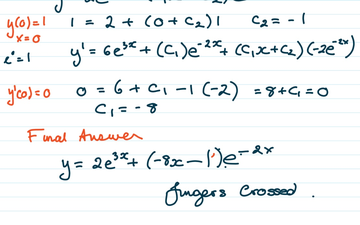 y(0)=1 1 = 2 + (0 + c₂) 1 c₂ = -1
x=0
e⁰=1 y' = 6e³ˣ + (c₁)e⁻²ˣ + (c₁x + c₂)(-2e⁻²ˣ)
y'(0)=0 0 = 6 + c₁ - 1 (-2) = 8 + c₁ = 0
c₁ = -8
Final Answer
y = 2e³ˣ + (-8x - 1)e⁻²ˣ
fingers crossed.